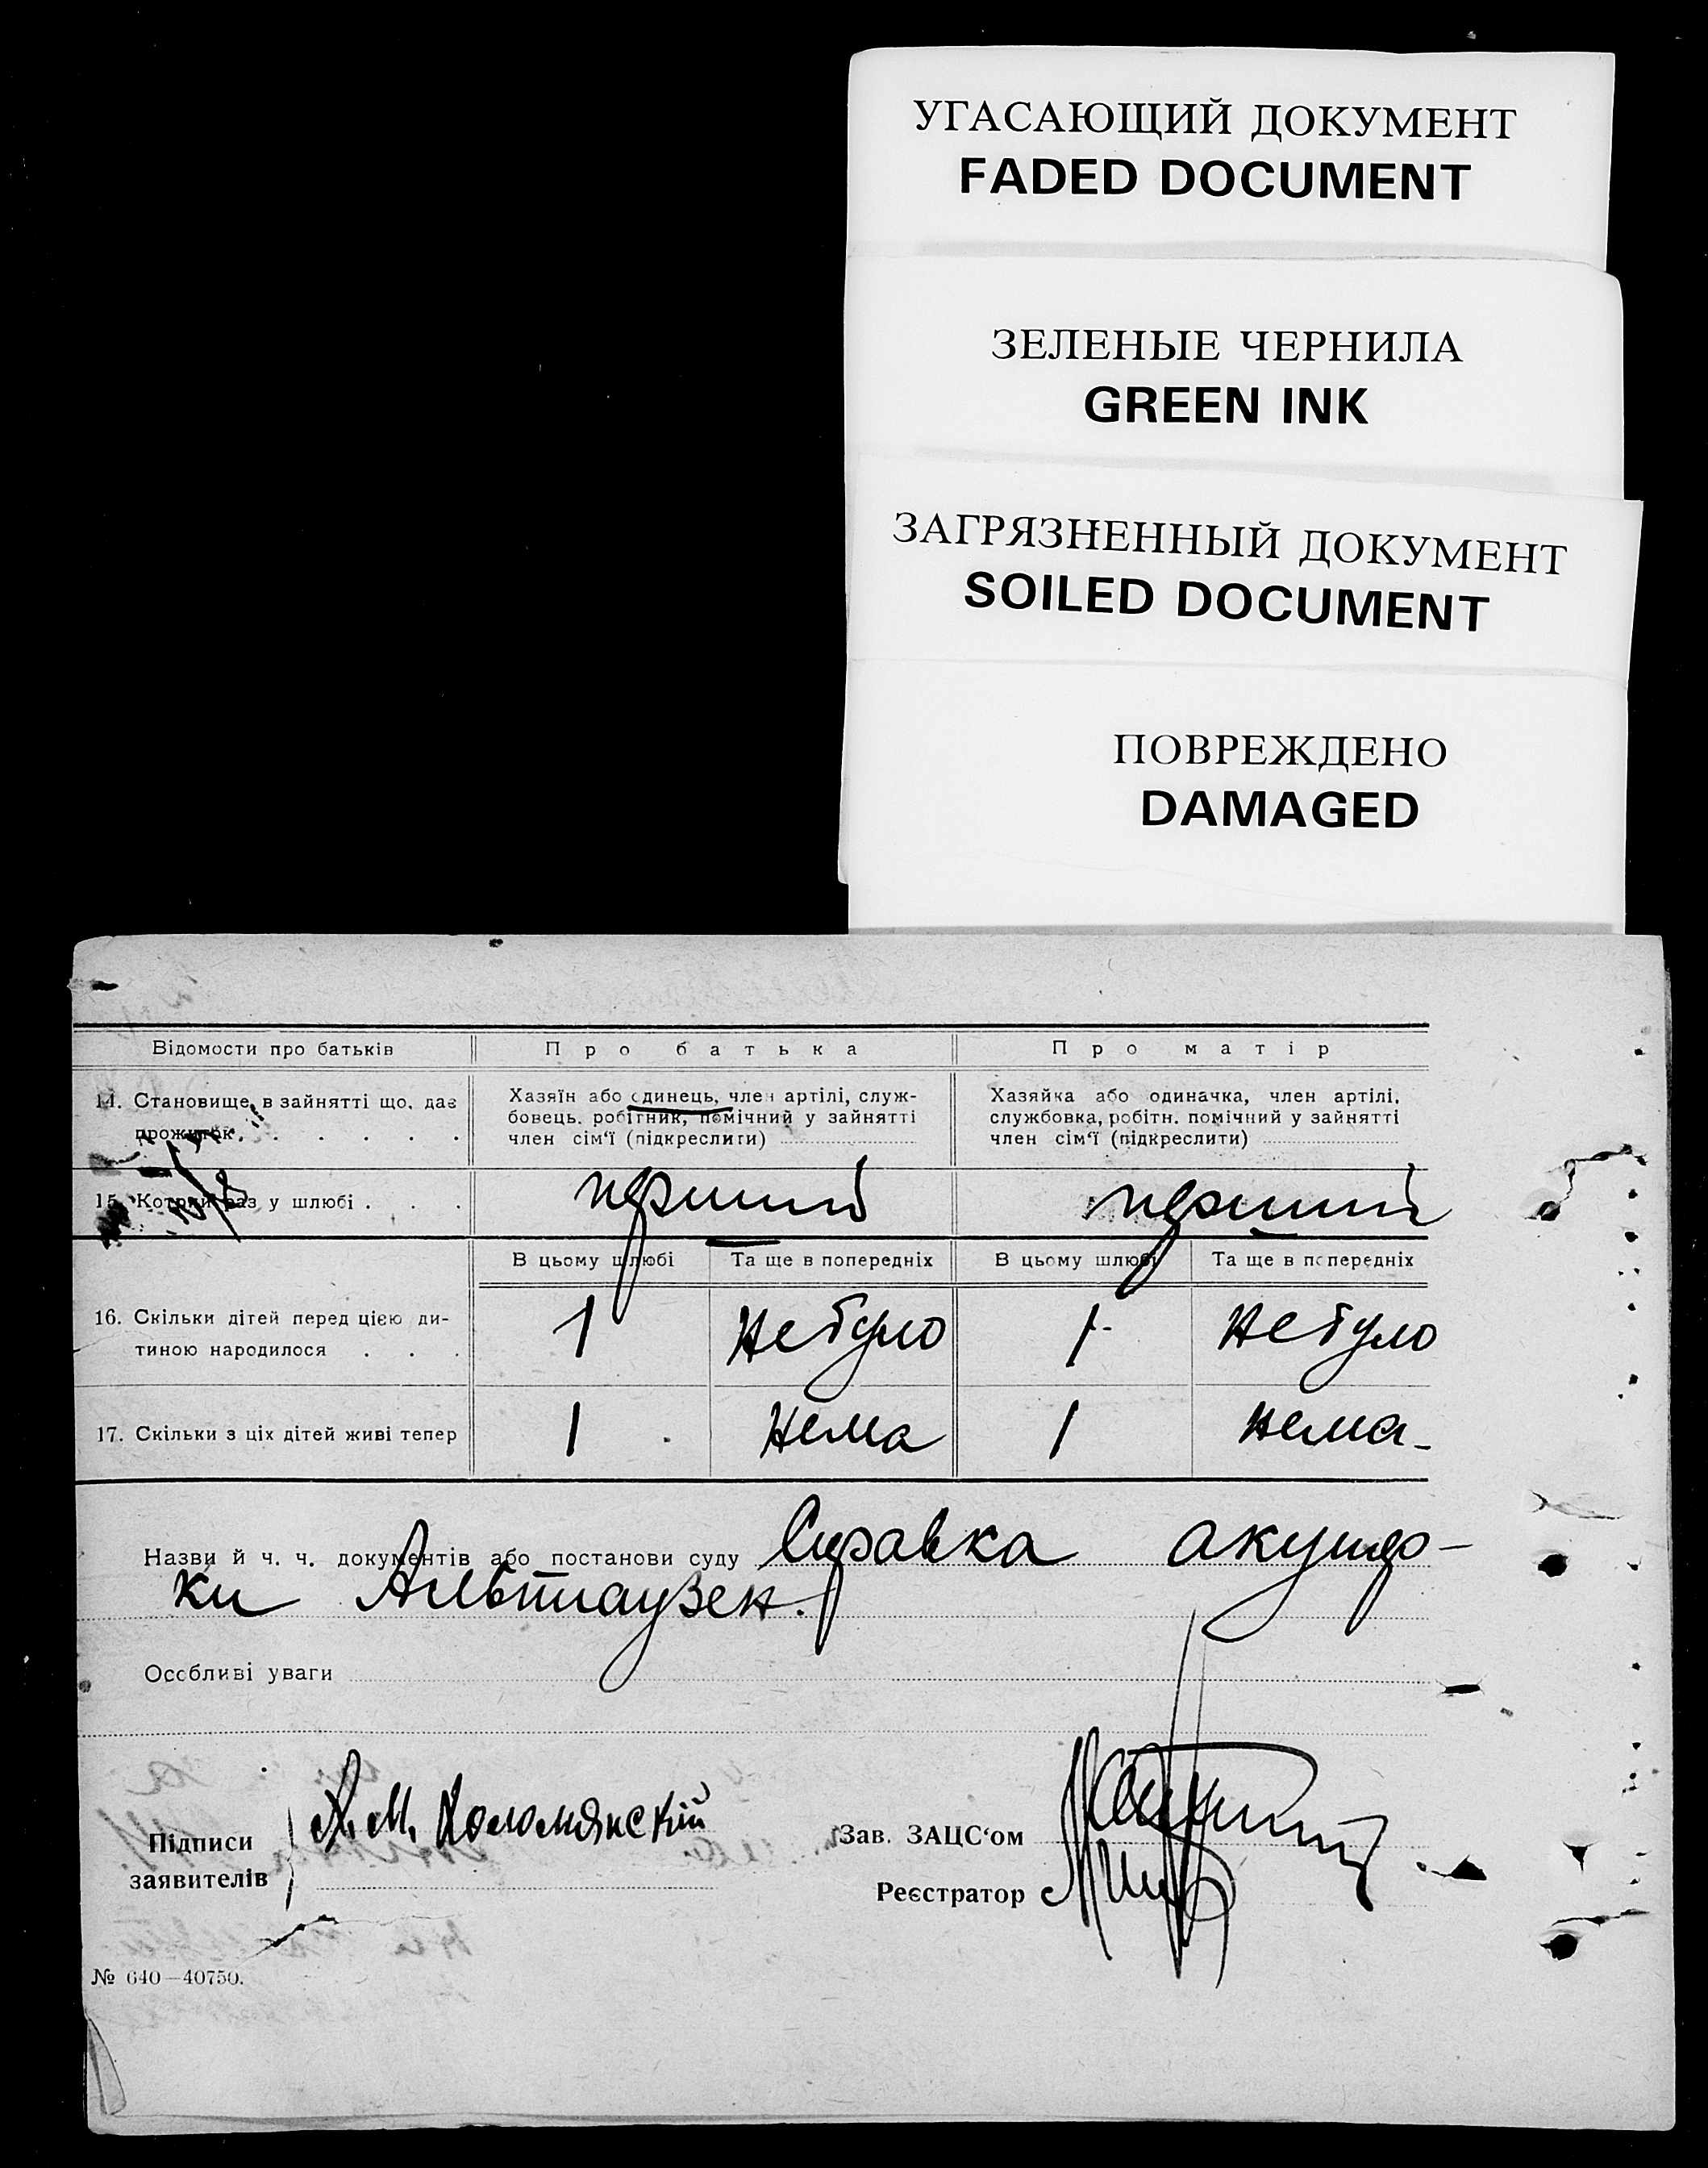 УГАСАЮЩИЙ ДОКУМЕНТ
FADED DOCUMENT
ЗЕЛЕНЫЕ ЧЕРНИЛА
GREEN INK
ЗАГРЯЗНЕННЫЙ ДОКУМЕНТ
SOILED DOCUMENT
ПОВРЕЖДЕНО
DAMAGED
Відомости про батьків Про батька Про матір
14. Становище в зайнятті що, дає
прожиток . . . . . .
Хазяїн або одинець, член артілі, служ-
бовець. робітник, помічний у зайнятті
член сім'ї (підкреслити)
Хазяйка або одиначка, член артілі,
службовка, робітн. помічний у зайнятті
член сім'ї (підкреслити)
15. Котрий раз у шлюбі . . . перший перший
В цьому шлюбі Та ще в попередніх В цьому шлюбі Та ще в попередніх
16. Скільки дітей перед цією ди-
тиною народилося . . .
1 не було 1- не було
17. Скільки з ціх дітей живі тепер 1 нема 1 нема-
Назви й ч. ч. документів або постанови суду Справка акушер-
ки Альтгаузен.
Особливі уваги
Підписи
заявителів
Зав. ЗАЦС'ом
Реєстратор
№ 640—40750.